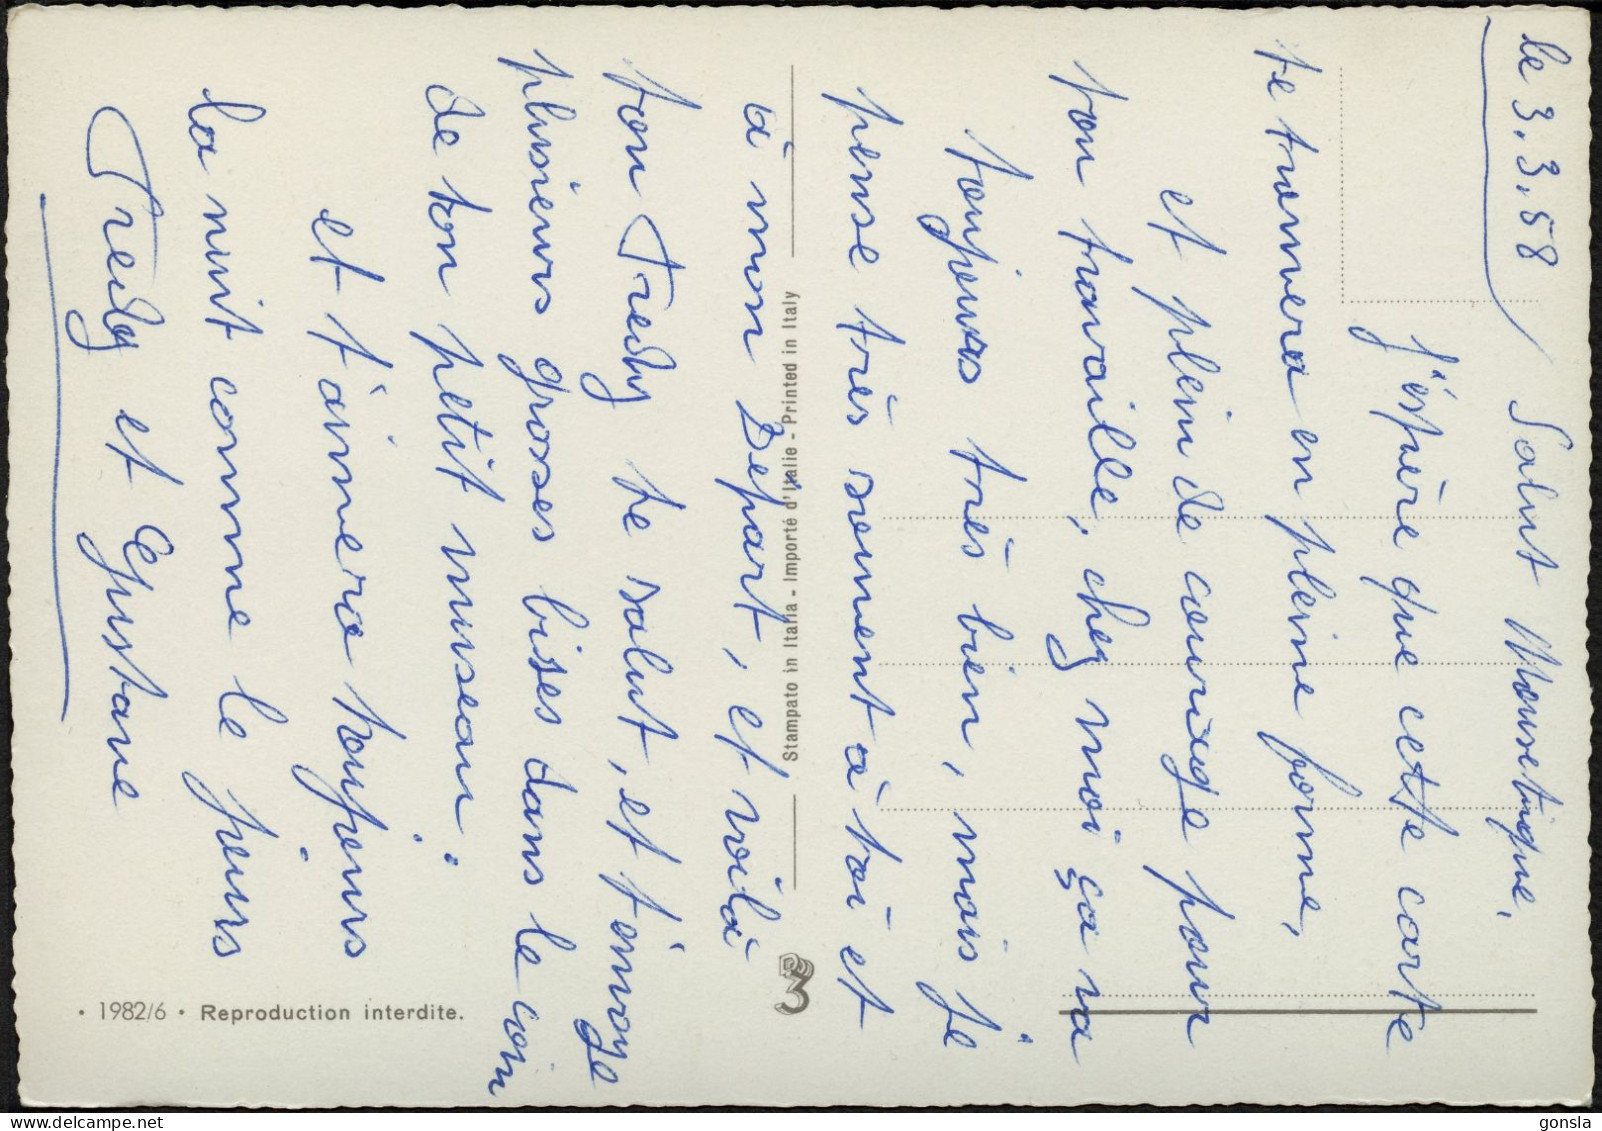 le 3.3.58 / Salut Moustique,
j'éspère que cette carte
te trouvera en pleine forme,
et plein de courage pour
ton travaille, chez moi ça va
toujours très bien, mais je
pense très souvent à toi et
à mon Départ, et voilà
ton Fredy te salut, et t'envoye
plusieurs grosses bises dans le coin
de ton petit museau.
et t'aimera toujours
la nuit comme le jours
Fredy et Gustave
Stampato in Italia - Importé d'Italie - Printed in Italy
3
• 1982/6 • Reproduction interdite.
gonsla